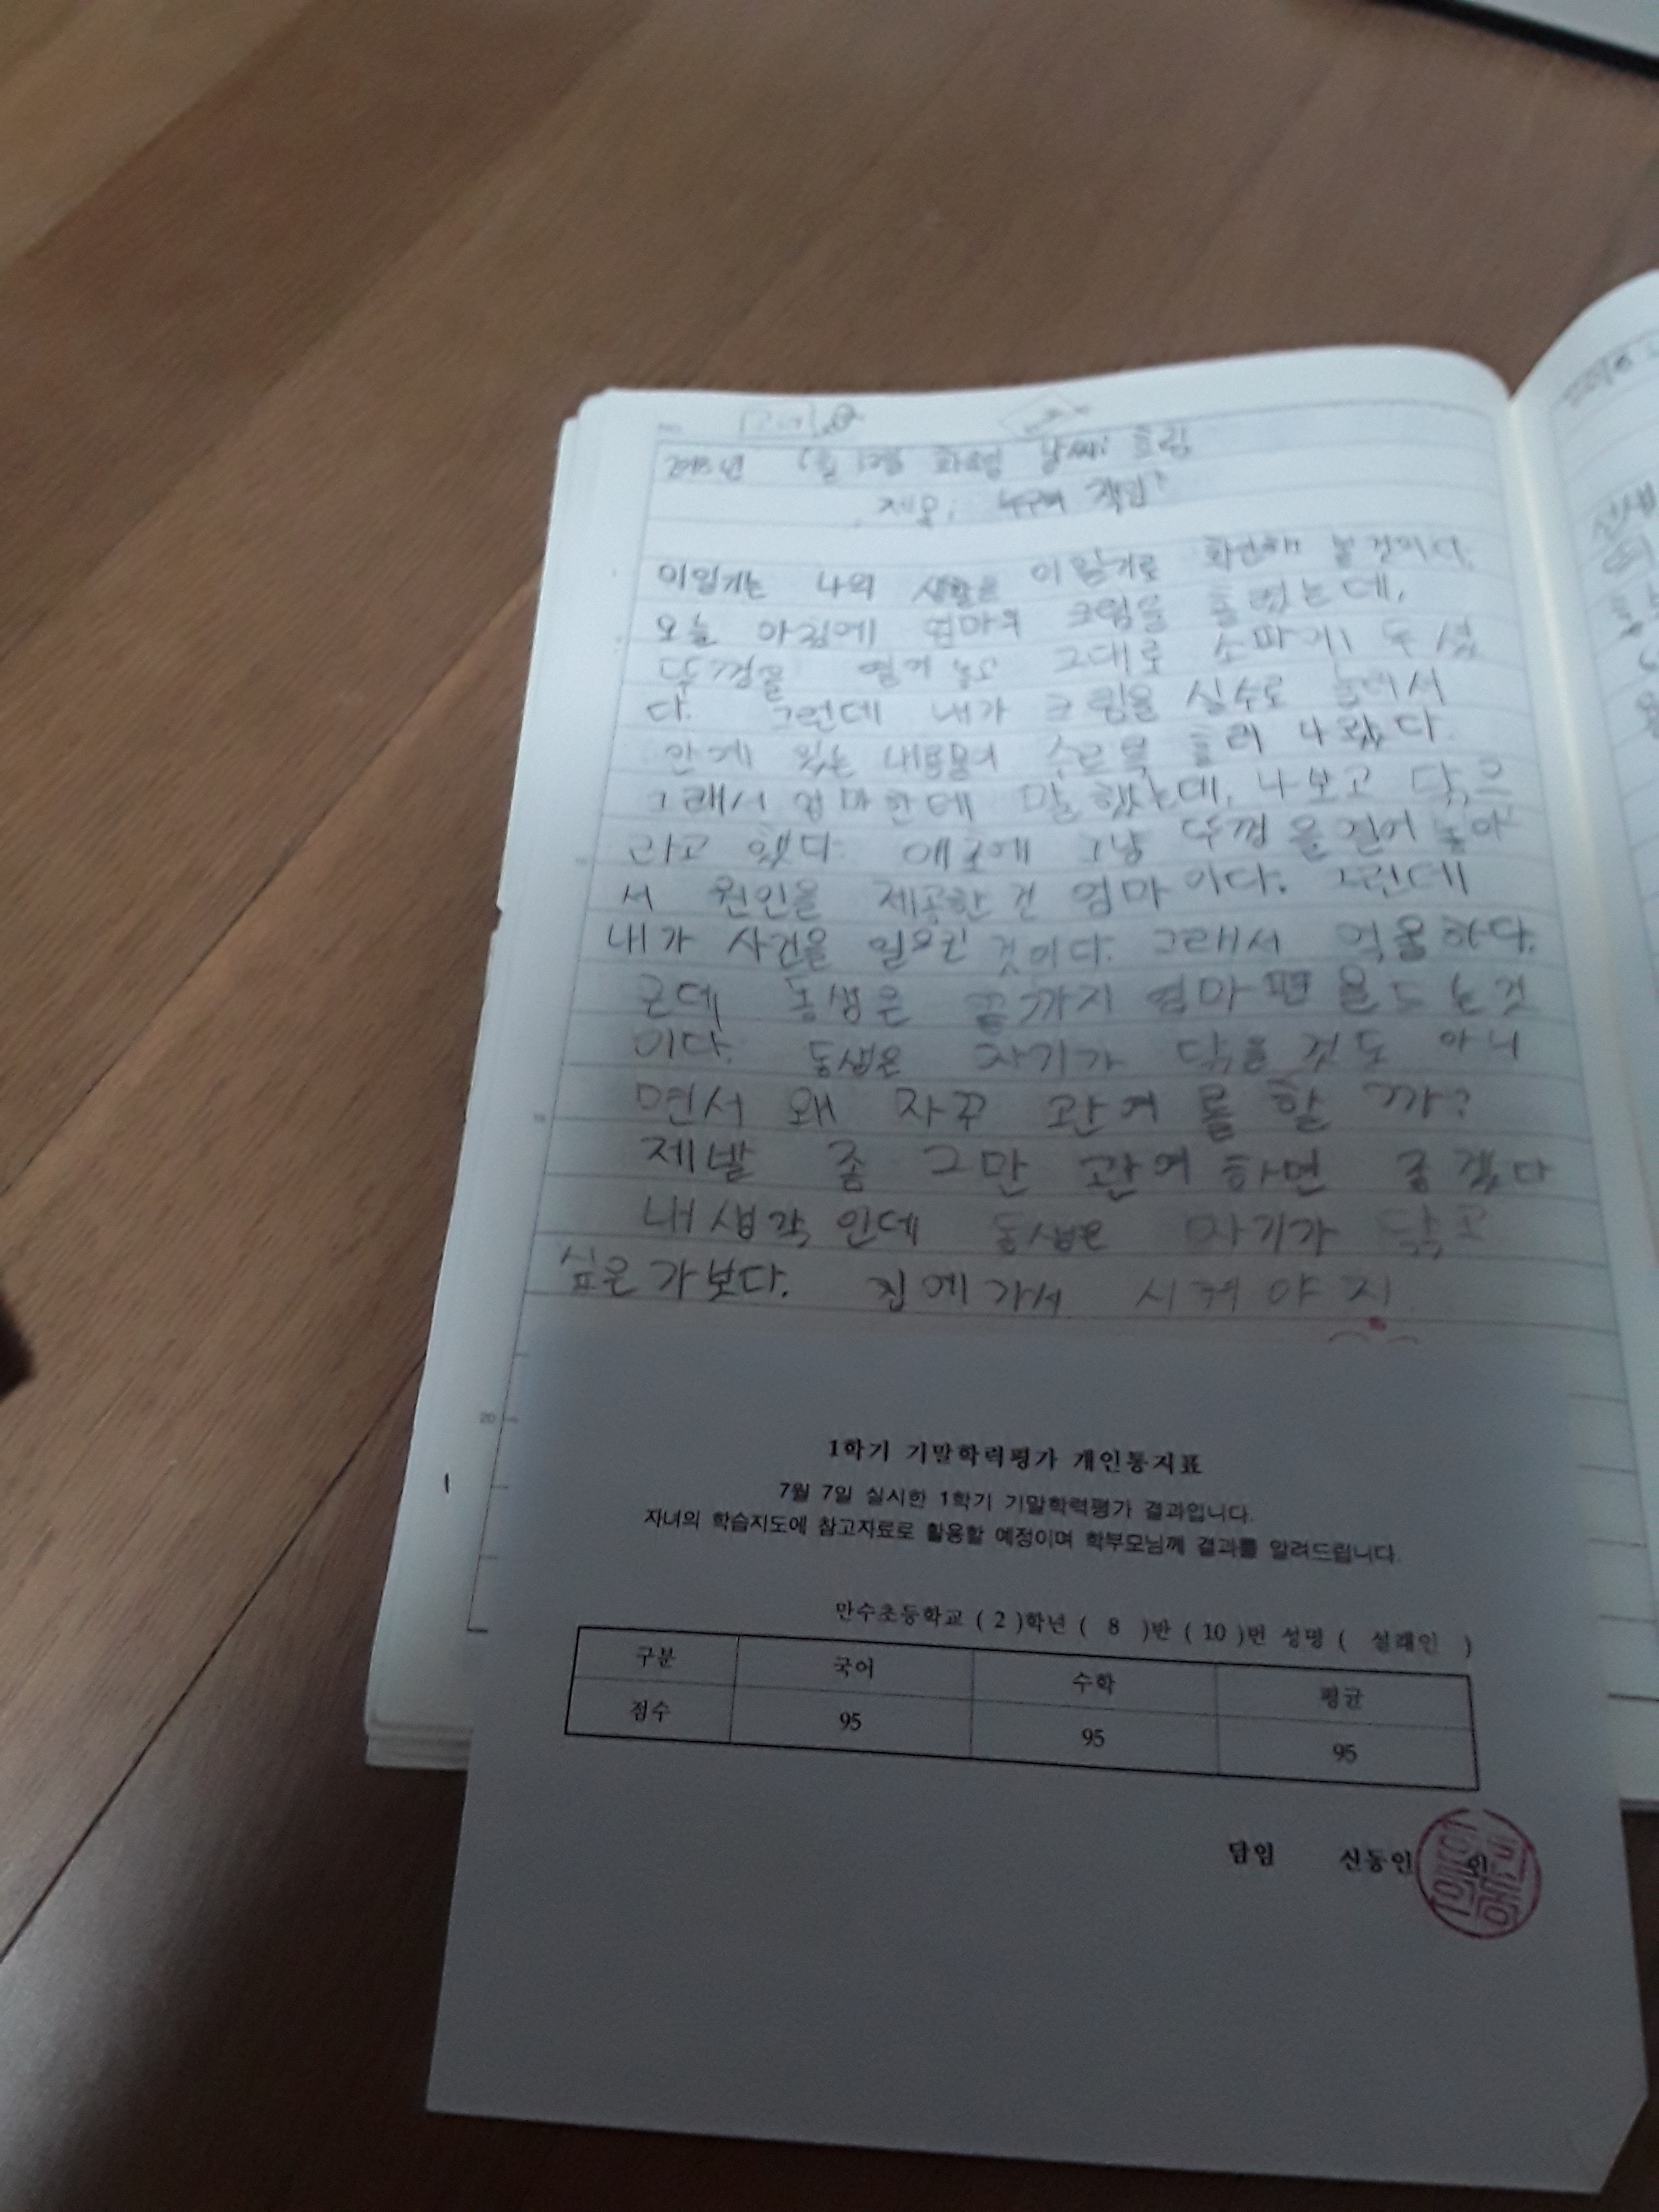 날씨: 흐림
제목: 누구의 책임?
이일기는 나의 생활을 이일기로 화단해 볼것이다.
오늘 아침에 엄마의 크림을 흘렸는데,
뚜껑을 열어 놓고 그대로 소파에 두셨
다. 그런데 내가 크림을 실수로 눌러서
안에 있는 내용물이 수르륵 흘러 나왔다.
그래서 엄마한테 말했는데, 나보고 닦으
라고 했다. 애초에 그냥 뚜껑을 열어 놓아
서 원인을 제공한 건 엄마이다. 그런데
내가 사건을 일으킨 것이다. 그래서 억울하다.
근데 동생은 끝까지 엄마편을 드는것
이다. 동생은 자기가 닦을 것도 아니
면서 왜 자꾸 관여를 할까?
제발 좀 그만 관여하면 좋겠다
내생각인데 동생은 자기가 닦고
싶은가보다. 집에가서 시켜야지
20
1학기 기말학력평가 개인통지표
7월 7일 실시한 1학기 기말학력평가 결과입니다.
자녀의 학습지도에 참고자료로 활용할 예정이며 학부모님께 결과를 알려드립니다.
만수초등학교 ( 2 )학년 ( 8 )반 ( 10 )번 성명 ( 설래인 )
구분 국어 수학 평균
점수 95 95 95
담임 신동인 인